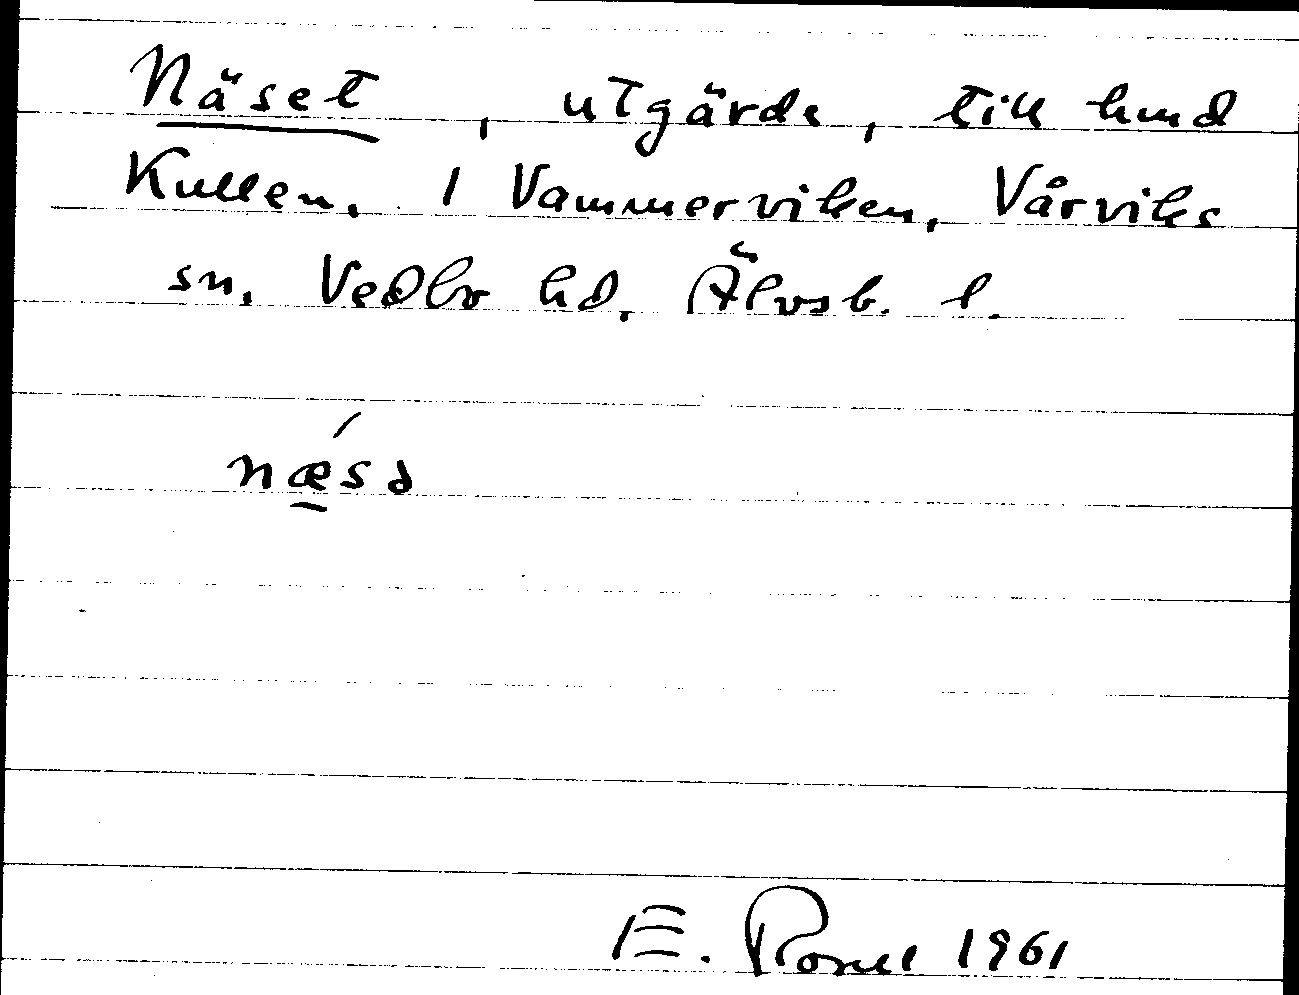 Näset, utgärde, till hmd
Kullen. 1 Vammerviken, Vårviks
sn. Vedbo hd, Älvsb. l.
nǽ̱sə
E. 1961